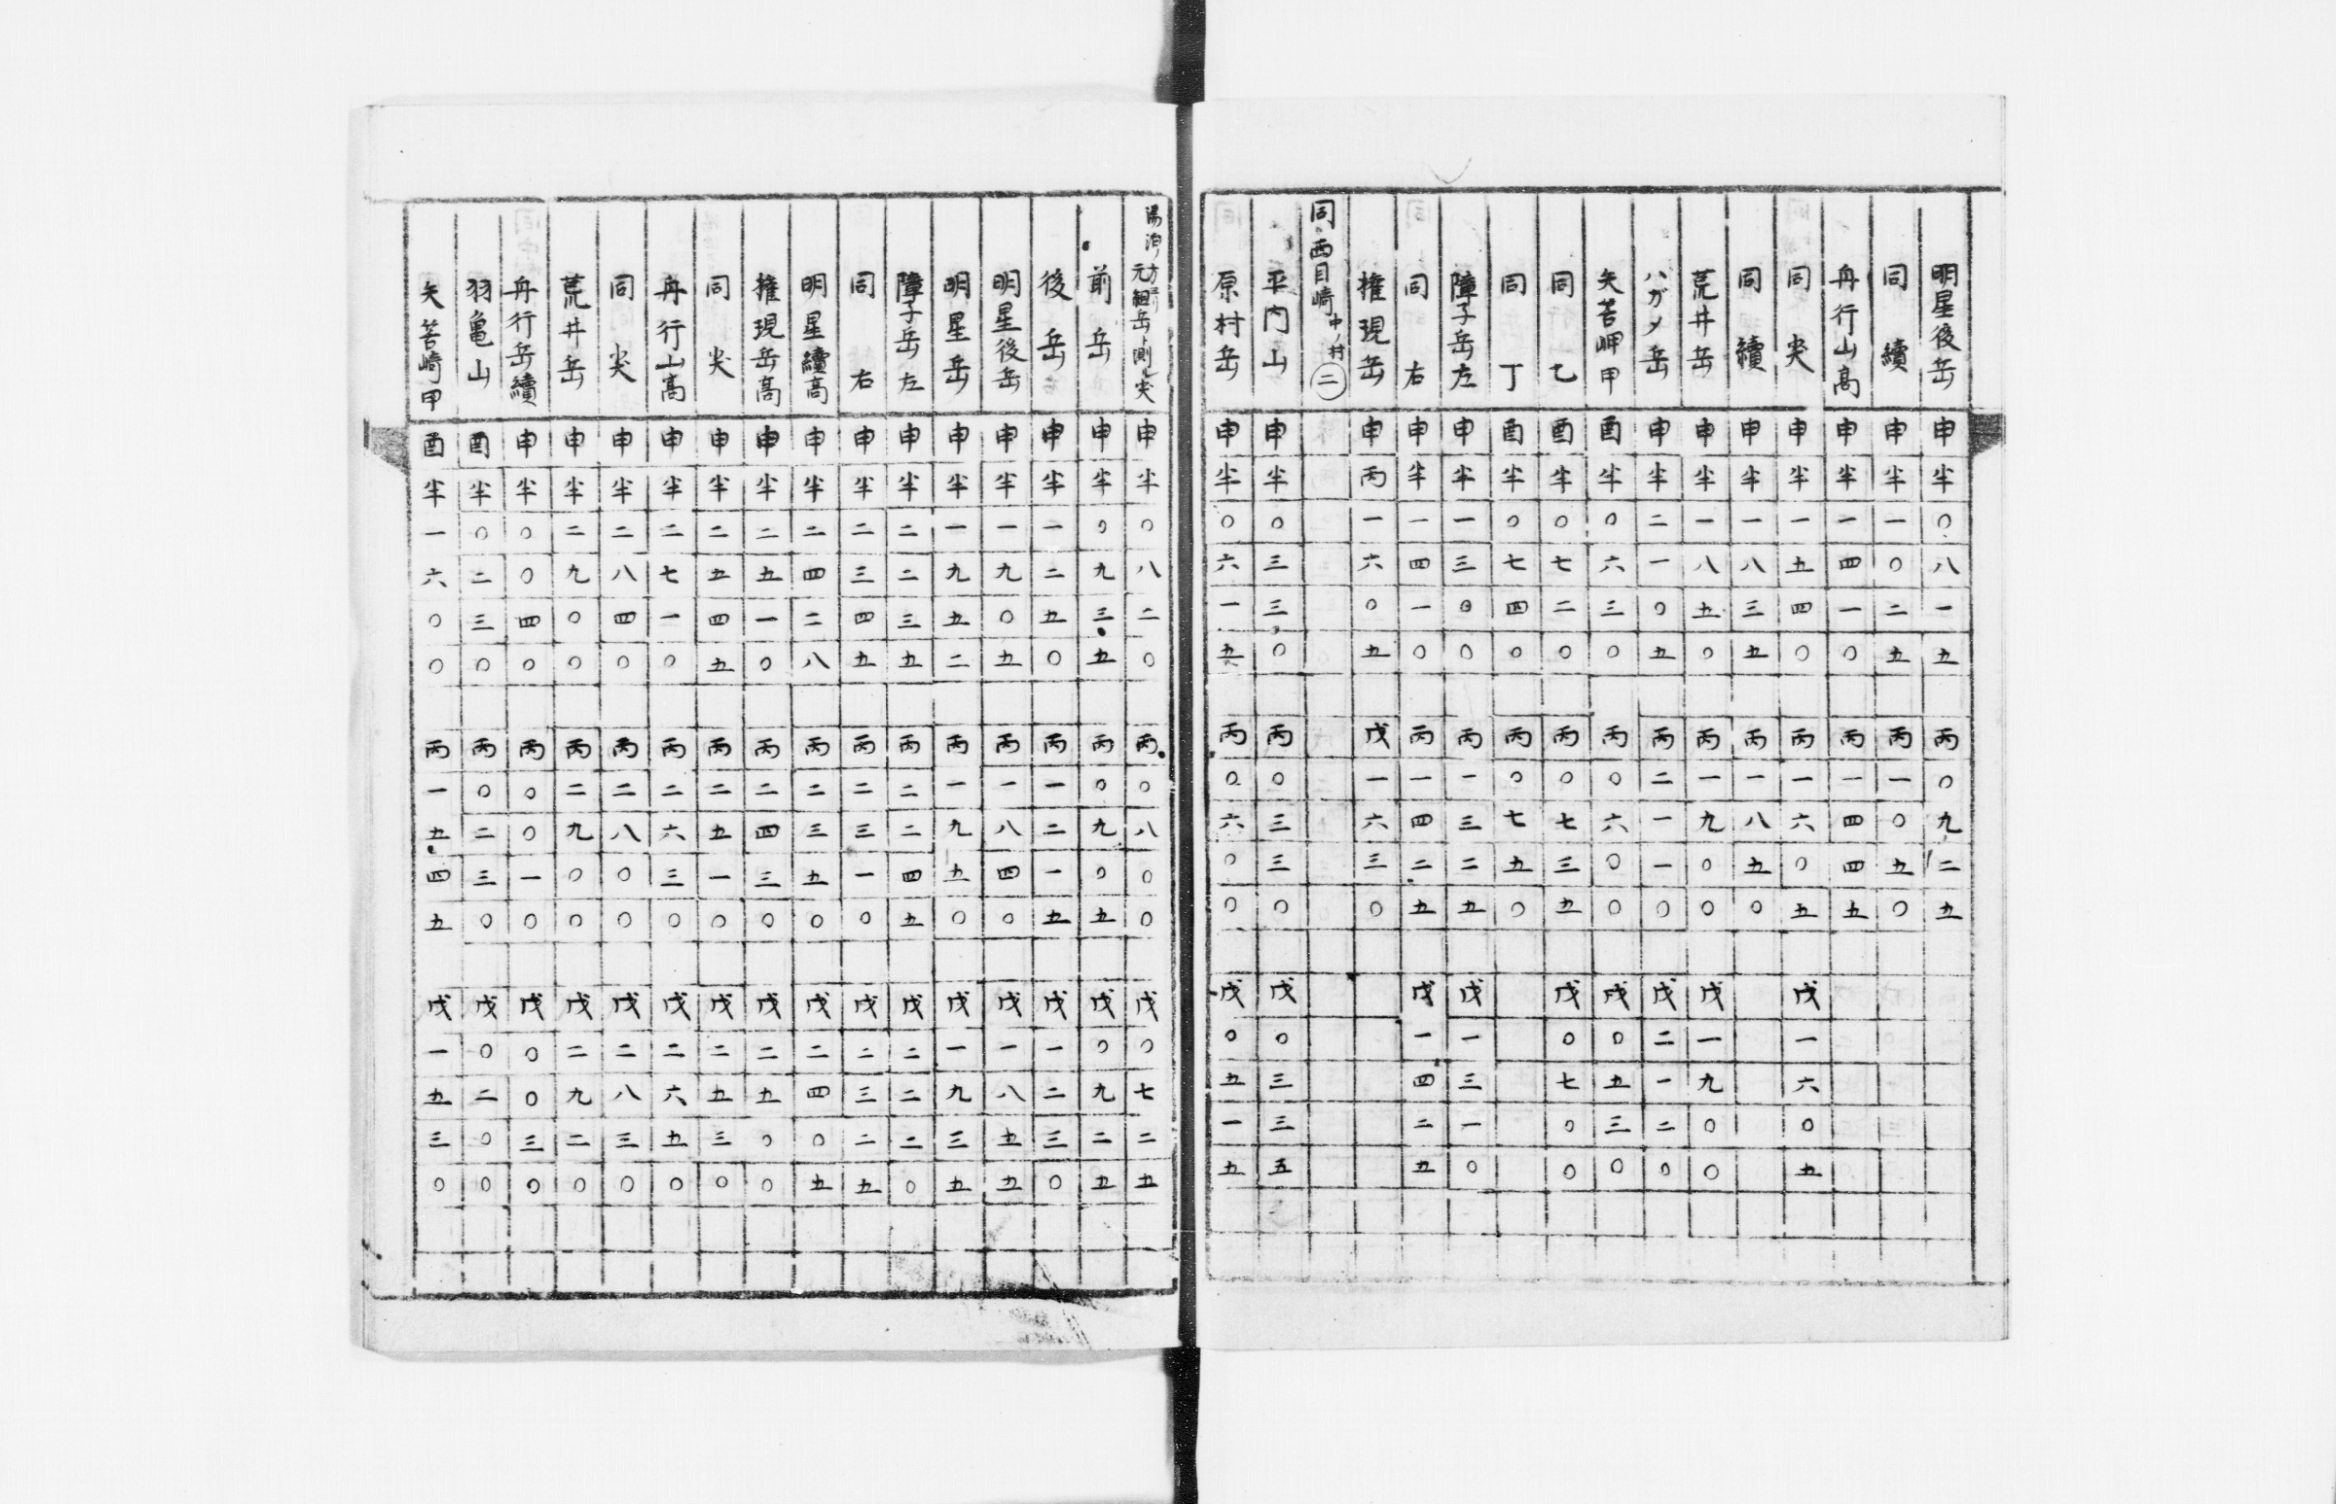 明星後岳 申半〇八一五 丙〇九二五
同續 申半一〇二五 丙一〇五〇
舟行山高 申半一四一〇 丙一四四五
同尖 申半一五四〇 丙一六〇五 戊一六〇五
同續 申半一八三五 丙一八五〇
荒井岳 申半一八五〇 丙一九〇〇 戊一九〇〇
ハガメ岳 申半二一〇五 丙二一一〇 戊二一二〇
矢苦岬甲 酉半〇六三〇 丙〇六〇〇 戊〇五三〇
同乙 酉半〇七二〇 丙〇七三五 戊〇七〇〇
同丁 酉半〇七四〇 丙〇七五〇
障子岳左 申半一三〇〇 丙一三二五 戊一三一〇
同右 申半一四一〇 丙一四二五 戊一四二五
権現岳 申丙一六〇五 戊一六三〇
同西目崎中ノ村二
平内山 申半〇三三〇 丙〇三三〇 戊〇三三五
原村岳 申半〇六一五 丙〇六〇〇 戊〇五一五
元組岳ト測尖 申半〇八二〇 丙〇八〇〇 戊〇七二五
前岳 申半〇九三五 丙〇九〇五 戊〇九二五
後岳 申半一二五〇 丙一二一五 戊一二三〇
明星後岳 申半一九〇五 丙一八四〇 戊一八五五
明星岳 申半一九五二 丙一九五〇 戊一九三五
障子岳左 申半二二三五 丙二二四五 戊二二二〇
同右 申半二三四五 丙二三一〇 戊二三二五
明星續高 申半二四二八 丙二三五〇 戊二四〇五
権現岳高 申半二五一〇 丙二四三〇 戊二五〇〇
同尖 申半二五四五 丙二五一〇 戊二五三〇
舟行山高 申半二七一〇 丙二六三〇 戊二六五〇
同尖 申半二八四〇 丙二八〇〇 戊二八三〇
荒井岳 申半二九〇〇 丙二九〇〇 戊二九二〇
舟行岳續 申半〇〇四〇 丙〇〇一〇 戊〇〇三〇
羽亀山 酉半〇二三〇 丙〇二三〇 戊〇二〇〇
矢苦崎甲 酉半一六〇〇 丙一五四五 戊一五三〇